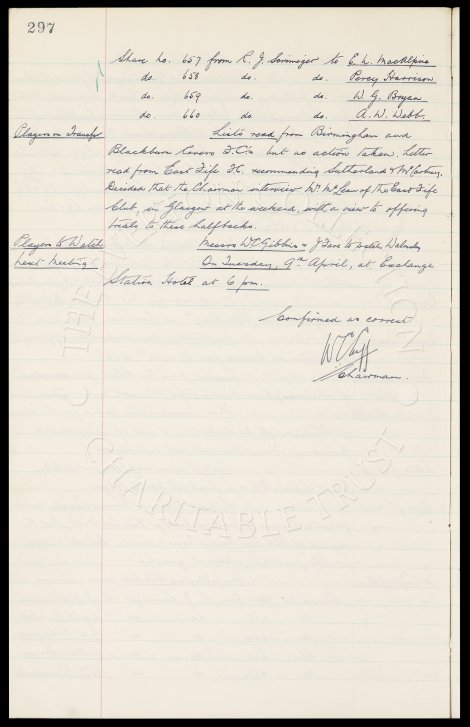 297
Share No. 657 from R. J. to E. L. MacAlpine
do. 658 do. do. Percy Harrison
do. 659 do. do. W. G. Bryan
do. 660 do. do. A. W. Webb.
Players on Transfer Lists read from Birmingham and
Blackburn Rovers F.C's but no action taken. Letter
read from East Fife F.C. recommending Sutherland &
Decided that the Chairman interview Mr. McLean of the East Fife
Club, in Glasgow at the weekend, with a view to offering
trials to these halfbacks.
Players to Watch Messrs W C Gibbins & J to watch
Next Meeting On Tuesday, 9th April, at Exchange
Station Hotel at 6 pm.
Confirmed as correct
W C Cuff
Chairman.
CHARITABLE TRUST